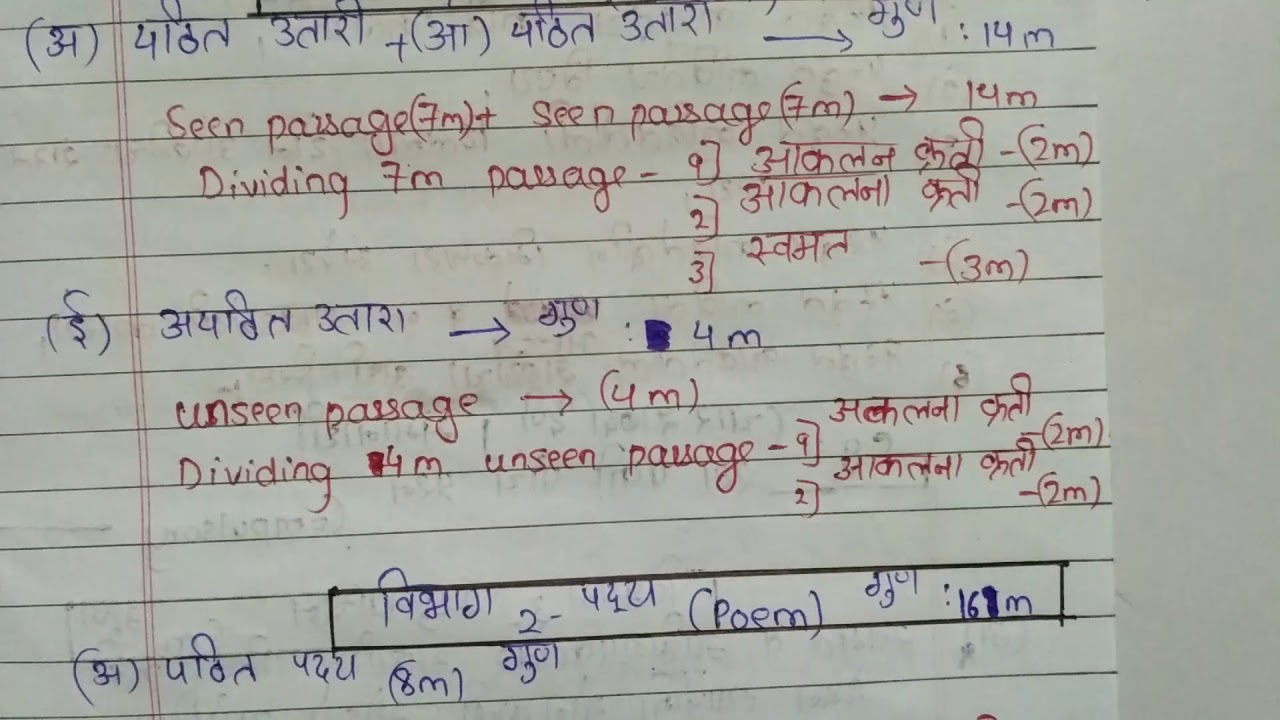 (अ) पठित उतारा + (आ) पठित उतारा → गुण : 14m
Seen passage(7m)+ seen passage(7m) → 14m
Dividing 7m passage - १] आकलन कृती -(2m)
२] आकलना कृती -(2m)
३] स्वमत -(3m)
(ई) अपठित उतारा → गुण : 4m
unseen passage → (4m)
Dividing 4m unseen passage - १] आकलना कृती -(2m)
२] आकलना कृती -(2m)
विभाग 2- पद्य (Poem) गुण :16m
(अ) पठित पद्य (8m) गुण